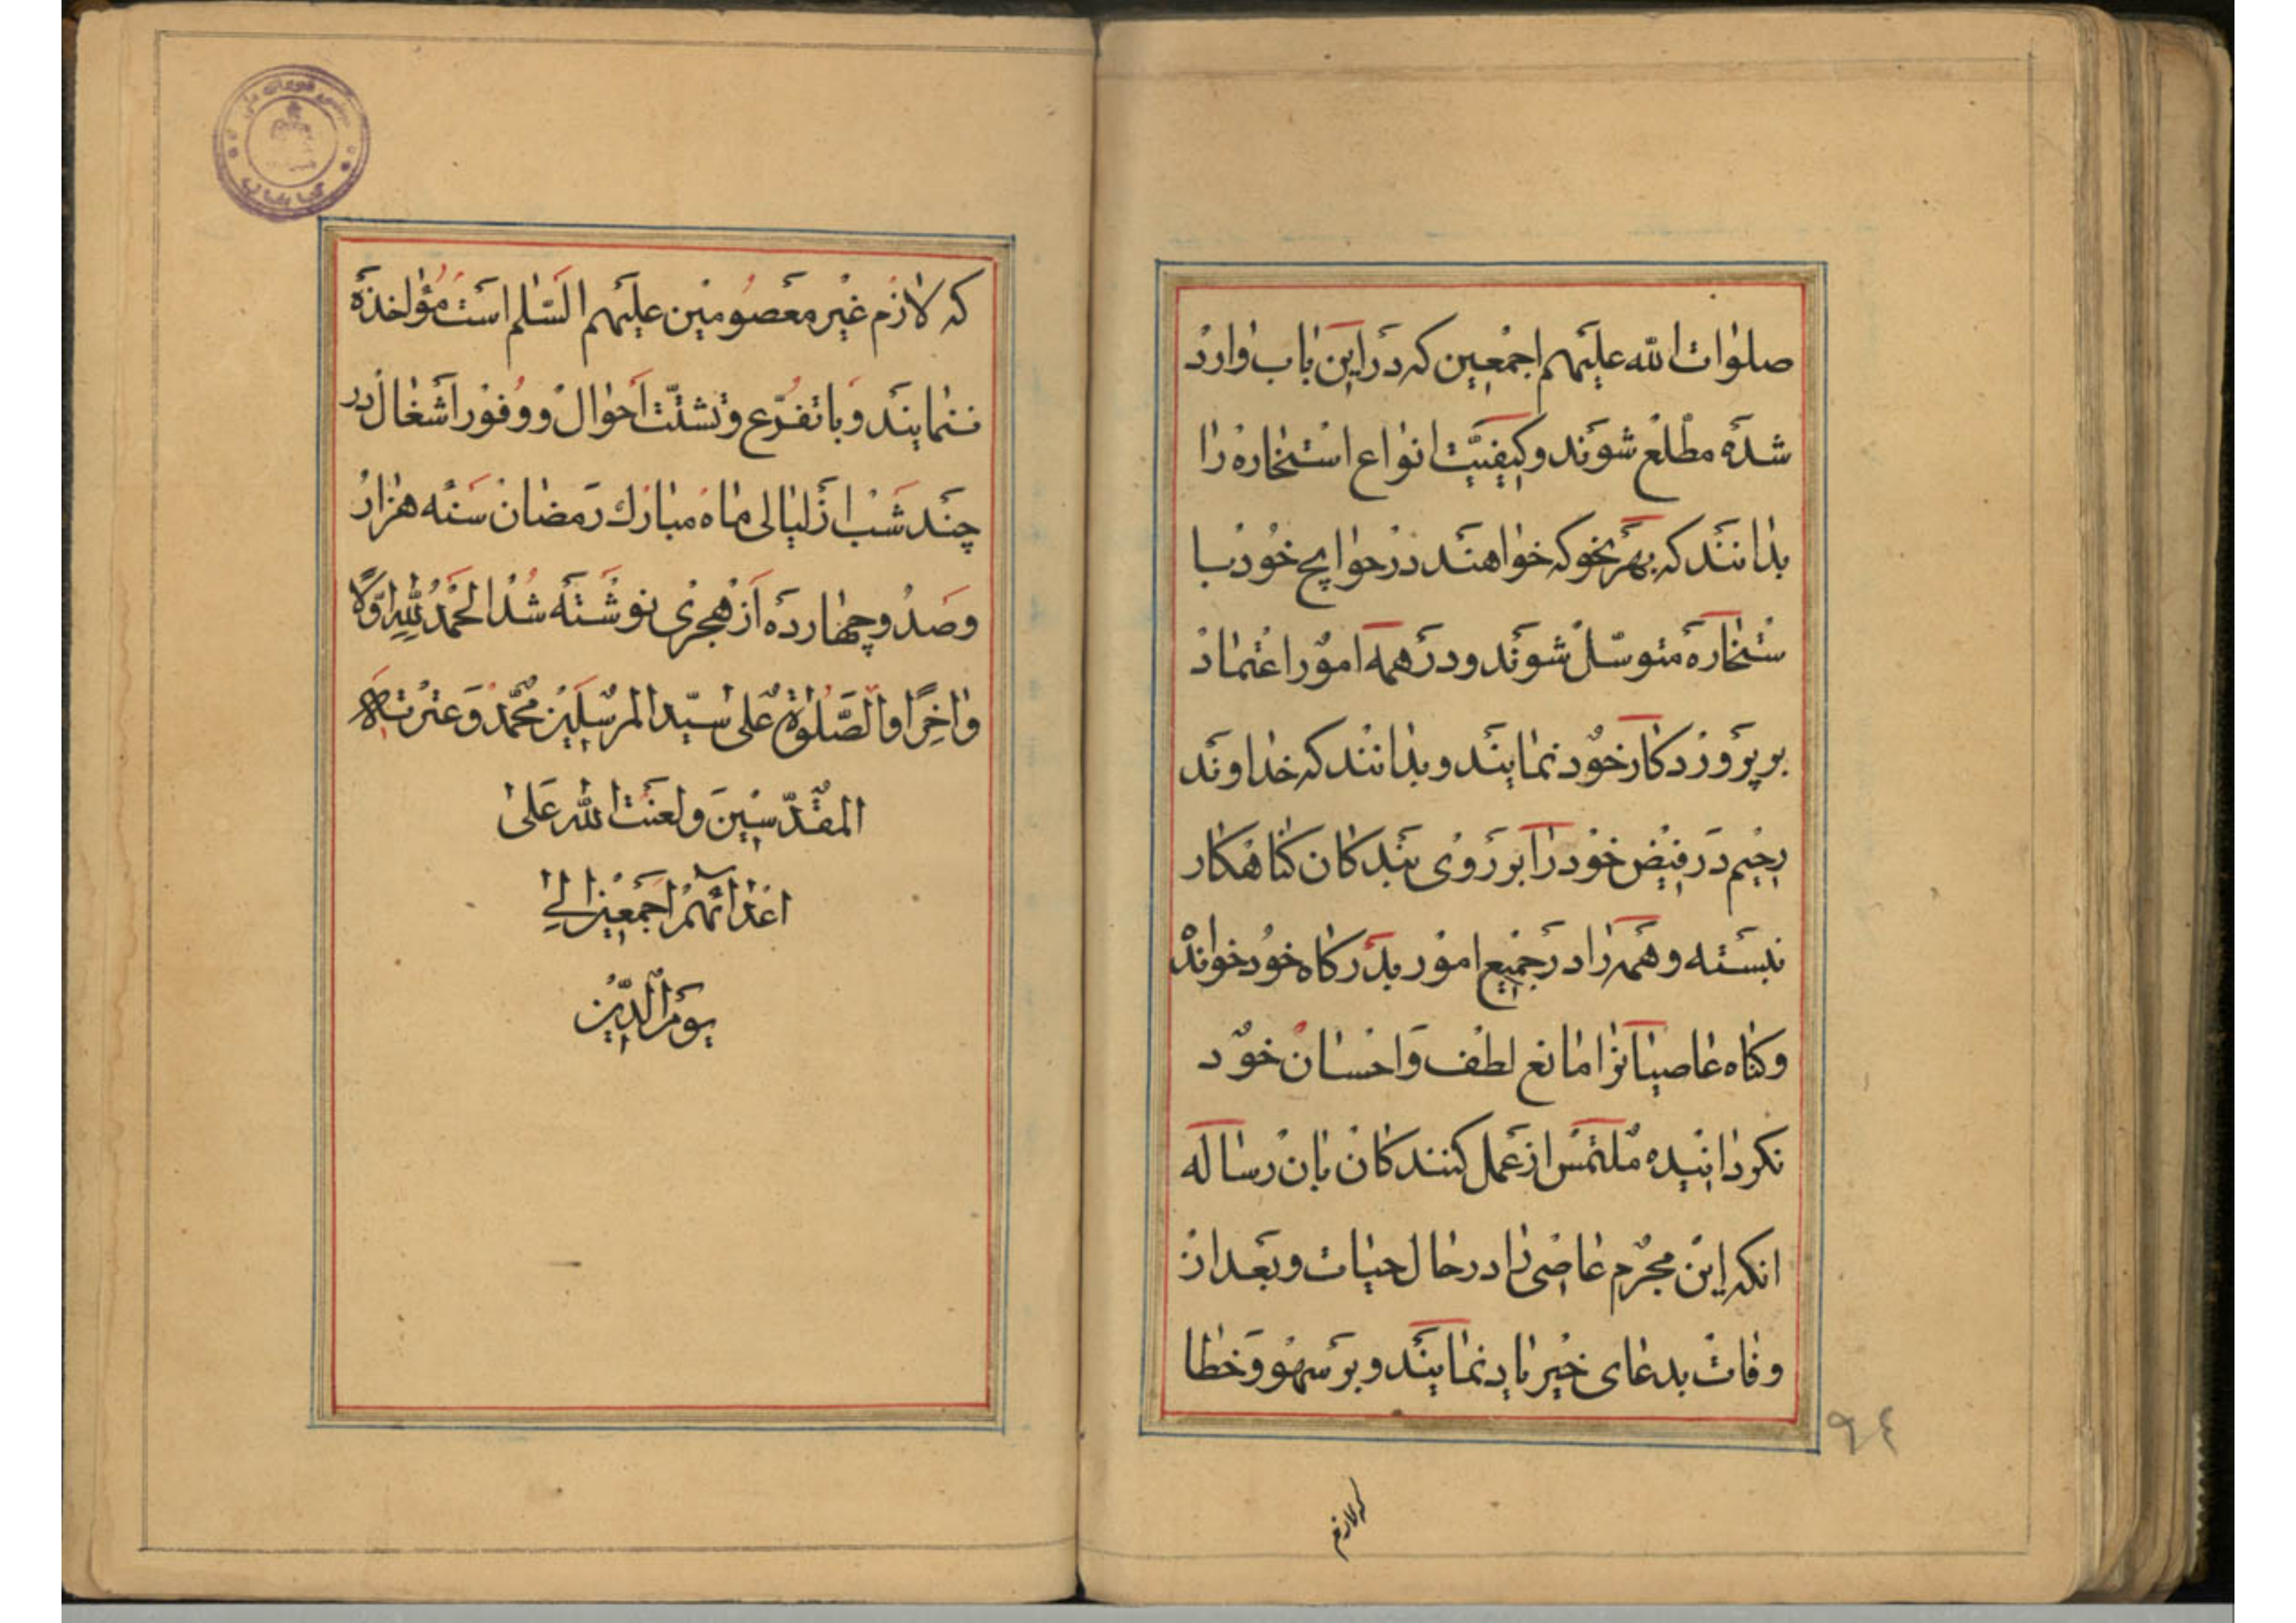 صلوات الله علیهم اجمعین که در این باب وارد
شده مطلع شوند و کیفیت انواع استخاره را
بدانند که بهر نحو که خواهند در حوایج خود با
ستخاره متوسل شوند و در همه امور اعتماد
بر پروردکار خود نمایند و بدانند که خداوند
رحیم در فیض خود را بر روی بندکان کناهکار
نبسته و همه را در جمیع امور بدرکاه خود خوانده
و کناه عاصیانرا مانع لطف و احسان خود
نکردانیده ملتمس از عمل کنندکان بان رساله
انکه این مجرم عاصی را در حال حیات و بعد از
وفات بدعای خیر یاد نمایند و بر سهو و خطا
که لازم
٩٤
که لازم غیر معصومین علیهم السلم است مؤاخذه
ننمایند و با تفرع و تشتت احوال و وفور اشغال در
چند شب از لیالی ماه مبارك رمضان سنه هزار
و صد و چهارده از هجری نوشته شد الحمد لله اولا
و اخرا و الصلوة علی سید المرسلین محمد و عترته
المقدسین و لعنت الله علی
اعدائهم اجمعین الی
یوم الدین